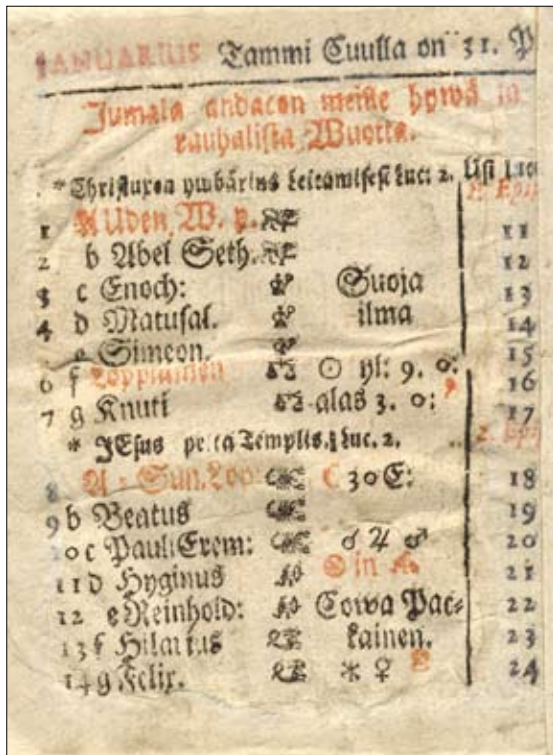 IANUARIUS Tammi Cuulla on 31. P
Jumala andacon meille hywä ja
rauhalista Wuotta.
* Christuxen ymbärins leickamisest Luc: 2. Usi
1 A Uden W. p. 11
2 b Abel Seth. 12
3 c Enoch: Suoja 13
4 d Matusal. ilma 14
e Simeon. 15
6 f Loppiainen ☉ yl: 9. o: 16
7 g Knuti alas 3. o: 17
* JEsus Templis. Luc. 2. 2.
8 A 1 Sun. C 30 E: 18
9 b Beatus 19
10 c Pauli Erem: ☌ ♃ ♂ 20
11 d Hyginus ☉ in 21
12 e Reinhold: Cowa Pac- 22
13 f Hilarius kainen. 23
14 g Felix. ✶ ♀ 24